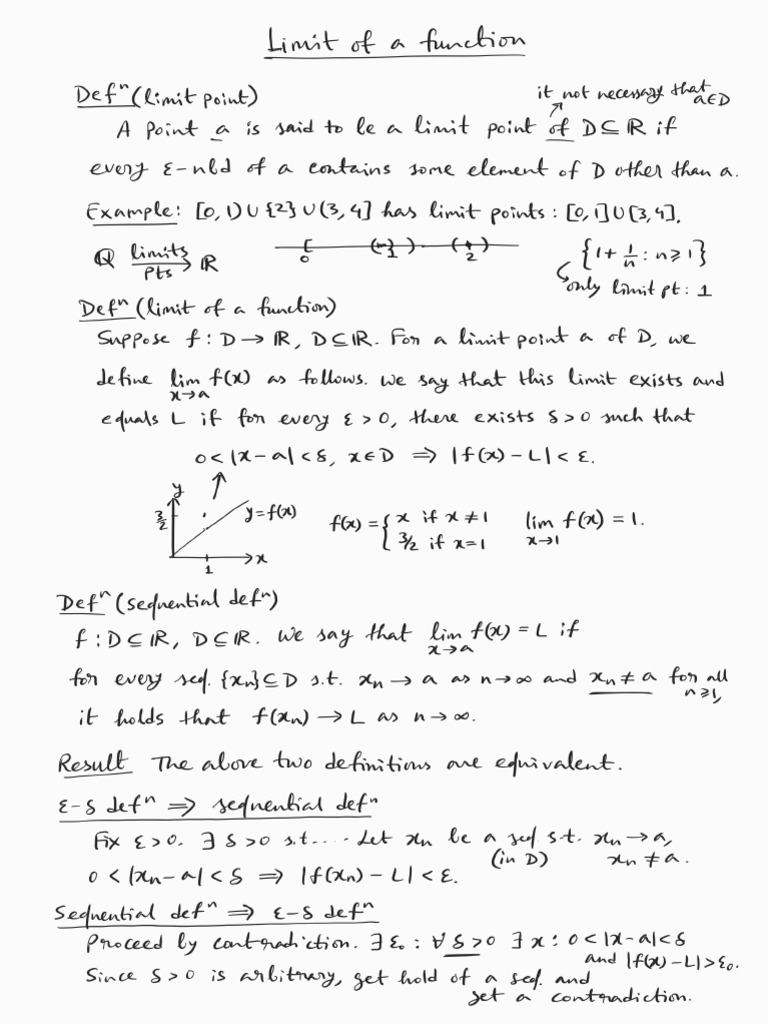 Limit of a function
Defⁿ (limit point)
it not necessary that a∈D
A point a is said to be a limit point of D⊆ℝ if
every ε-nbd of a contains some element of D other than a.
Example: [0,1)∪{2}∪(3,4] has limit points: [0,1]∪[3,4].
ℚ limits pts → ℝ
0 1 2
{1+1/n : n≥1}
only limit pt: 1
Defⁿ (limit of a function)
Suppose f: D→ℝ, D⊆ℝ. For a limit point a of D, we
define lim x→a f(x) as follows. We say that this limit exists and
equals L if for every ε>0, there exists δ>0 such that
0<|x-a|<δ, x∈D ⟹ |f(x)-L|<ε.
y 3/2 y=f(x) 1 x
f(x) = { x if x≠1
3/2 if x=1
lim x→1 f(x) = 1.
Defⁿ (sequential defⁿ)
f: D⊆ℝ, D⊆ℝ. We say that lim x→a f(x) = L if
for every seq. {xₙ}⊆D s.t. xₙ→a as n→∞ and xₙ≠a for all n≥1,
it holds that f(xₙ)→L as n→∞.
Result The above two definitions are equivalent.
ε-δ defⁿ ⟹ sequential defⁿ
Fix ε>0. ∃ δ>0 s.t.... Let xₙ be a seq s.t. xₙ→a,
(in D) xₙ≠a.
0<|xₙ-a|<δ ⟹ |f(xₙ)-L|<ε.
Sequential defⁿ ⟹ ε-δ defⁿ
Proceed by contradiction. ∃ ε₀ : ∀ δ>0 ∃ x : 0<|x-a|<δ
and |f(x)-L|>ε₀.
Since δ>0 is arbitrary, get hold of a seq. and
get a contradiction.